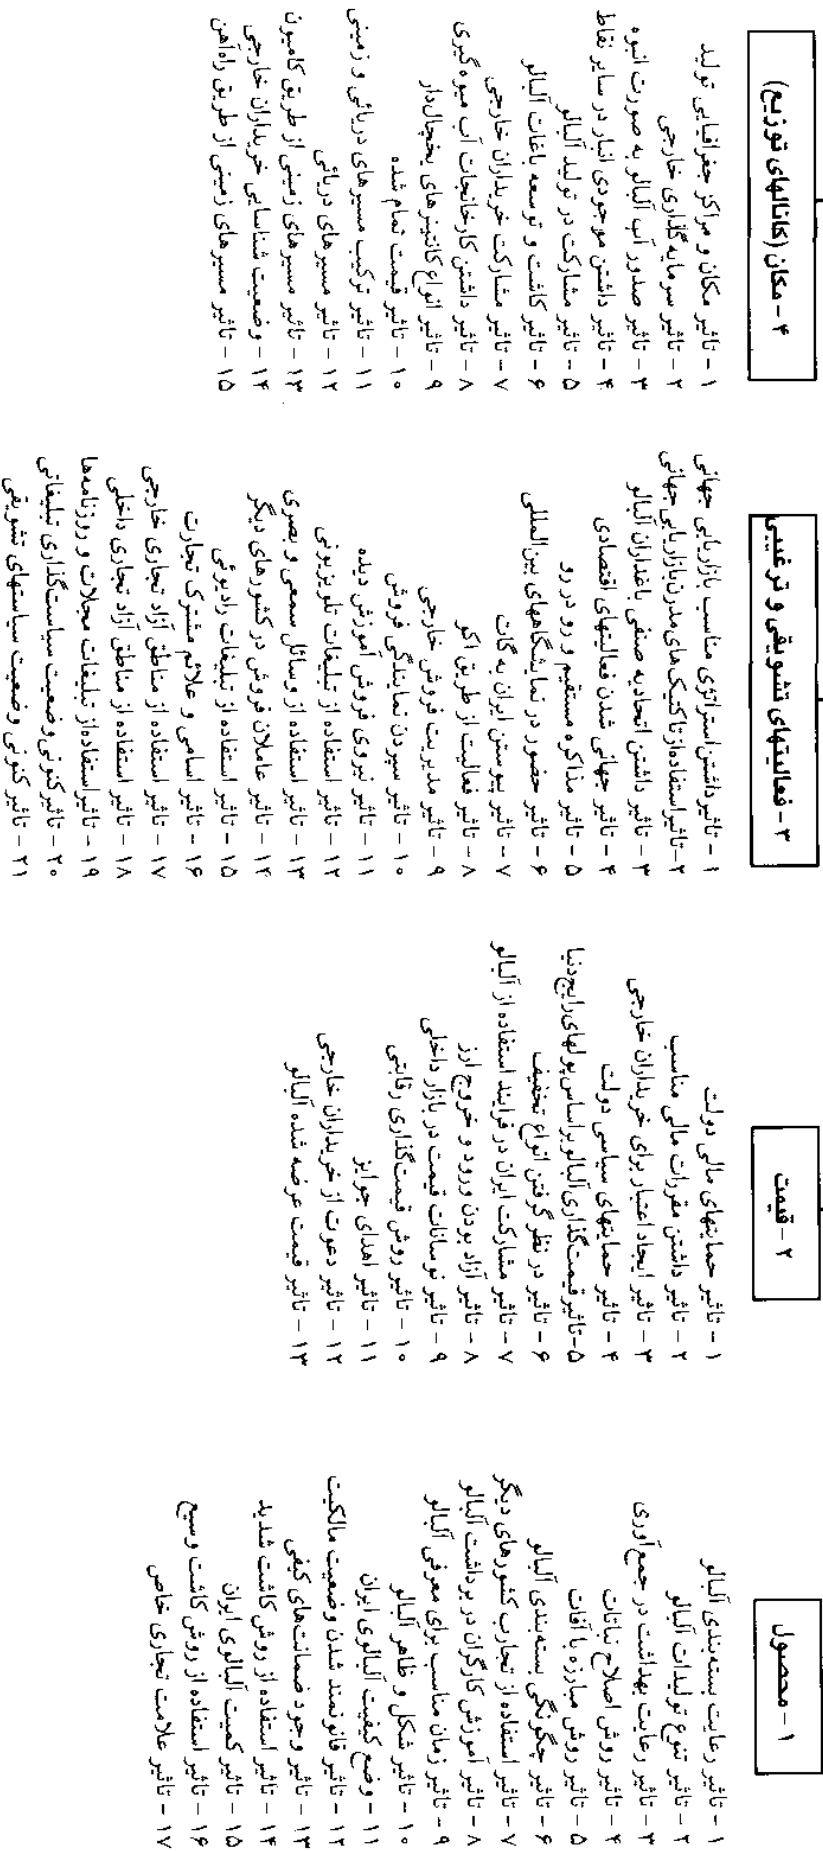 ۱ - محصول
۱ - تاثیر رعایت بسته‌بندی آلبالو
۲ - تاثیر تنوع تولیدات آلبالو
۳ - تاثیر رعایت بهداشت در جمع‌آوری
۴ - تاثیر روش اصلاح نباتات
۵ - تاثیر روش مبارزه با آفات
۶ - تاثیر چگونگی بسته‌بندی آلبالو
۷ - تاثیر استفاده از تجارب کشورهای دیگر
۸ - تاثیر آموزش کارگران در برداشت آلبالو
۹ - تاثیر زمان مناسب برای معرفی آلبالو
۱۰ - تاثیر شکل و ظاهر آلبالو
۱۱ - وضع کیفیت آلبالوی ایران
۱۲ - تاثیر قانونمند شدن وضعیت مالکیت
۱۳ - تاثیر وجود ضمانت‌های کیفی
۱۴ - تاثیر استفاده از روش کاشت شدید
۱۵ - تاثیر کمیت آلبالوی ایران
۱۶ - تاثیر استفاده از روش کاشت وسیع
۱۷ - تاثیر علامت تجاری خاص
۲ - قیمت
۱ - تاثیر حمایتهای مالی دولت
۲ - تاثیر داشتن مقررات مالی مناسب
۳ - تاثیر ایجاد اعتبار برای خریداران خارجی
۴ - تاثیر حمایتهای سیاسی دولت
۵-تاثیر قیمت‌گذاری آلبالو براساس پولهای رایج دنیا
۶ - تاثیر در نظر گرفتن انواع تخفیف
۷ - تاثیر مشارکت ایران در فرایند استفاده از آلبالو
۸ - تاثیر آزاد بودن ورود و خروج ارز
۹ - تاثیر نوسانات قیمت در بازار داخلی
۱۰ - تاثیر روش قیمت‌گذاری رقابتی
۱۱ - تاثیر اهدای جوایز
۱۲ - تاثیر دعوت از خریداران خارجی
۱۳ - تاثیر قیمت عرضه شده آلبالو
۳ - فعالیتهای تشویقی و ترغیبی
۱ - تاثیر داشتن استراتژی مناسب بازاریابی جهانی
۲-تاثیر استفاده از تاکتیک‌های مدرن بازاریابی جهانی
۳ - تاثیر داشتن اتحادیه صنفی باغداران آلبالو
۴ - تاثیر جهانی شدن فعالیتهای اقتصادی
۵ - تاثیر مذاکره مستقیم و رو در رو
۶ - تاثیر حضور در نمایشگاههای بین‌المللی
۷ - تاثیر پیوستن ایران به گات
۸ - تاثیر فعالیت از طریق اکو
۹ - تاثیر مدیریت فروش خارجی
۱۰ - تاثیر سپردن نمایندگی فروش
۱۱ - تاثیر نیروی فروش آموزش دیده
۱۲ - تاثیر استفاده از تبلیغات تلویزیونی
۱۳ - تاثیر استفاده از وسائل سمعی و بصری
۱۴ - تاثیر عاملان فروش در کشورهای دیگر
۱۵ - تاثیر استفاده از تبلیغات رادیوئی
۱۶ - تاثیر اسامی و علائم مشترک تجارت
۱۷ - تاثیر استفاده از مناطق آزاد تجاری خارجی
۱۸ - تاثیر استفاده از مناطق آزاد تجاری داخلی
۱۹ - تاثیر استفاده از تبلیغات مجلات و روزنامه‌ها
۲۰ - تاثیر کنونی وضعیت سیاست‌گذاری تبلیغاتی
۲۱ - تاثیر کنونی وضعیت سیاستهای تشویقی
۴ - مکان (کانالهای توزیع)
۱ - تاثیر مکان و مراکز جغرافیایی تولید
۲ - تاثیر سرمایه‌گذاری خارجی
۳ - تاثیر صدور آب آلبالو به صورت انبوه
۴ - تاثیر داشتن موجودی انبار در سایر نقاط
۵ - تاثیر مشارکت در تولید آلبالو
۶ - تاثیر کاشت و توسعه باغات آلبالو
۷ - تاثیر مشارکت خریداران خارجی
۸ - تاثیر داشتن کارخانجات آب میوه‌گیری
۹ - تاثیر انواع کانتینرهای یخچال‌دار
۱۰ - تاثیر قیمت تمام شده
۱۱ - تاثیر ترکیب مسیرهای دریائی و زمینی
۱۲ - تاثیر مسیرهای دریائی
۱۳ - تاثیر مسیرهای زمینی از طریق کامیون
۱۴ - وضعیت شناسایی خریداران خارجی
۱۵ - تاثیر مسیرهای زمینی از طریق راه‌آهن